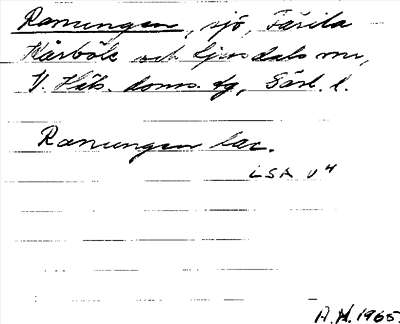 Ramungen, sjö, Färila
Kårböle och Ljusdals snr,
V. Häls. doms. tg, Gävl. l.
Ramungen lac.
LSA U 4
A.H. 1965.